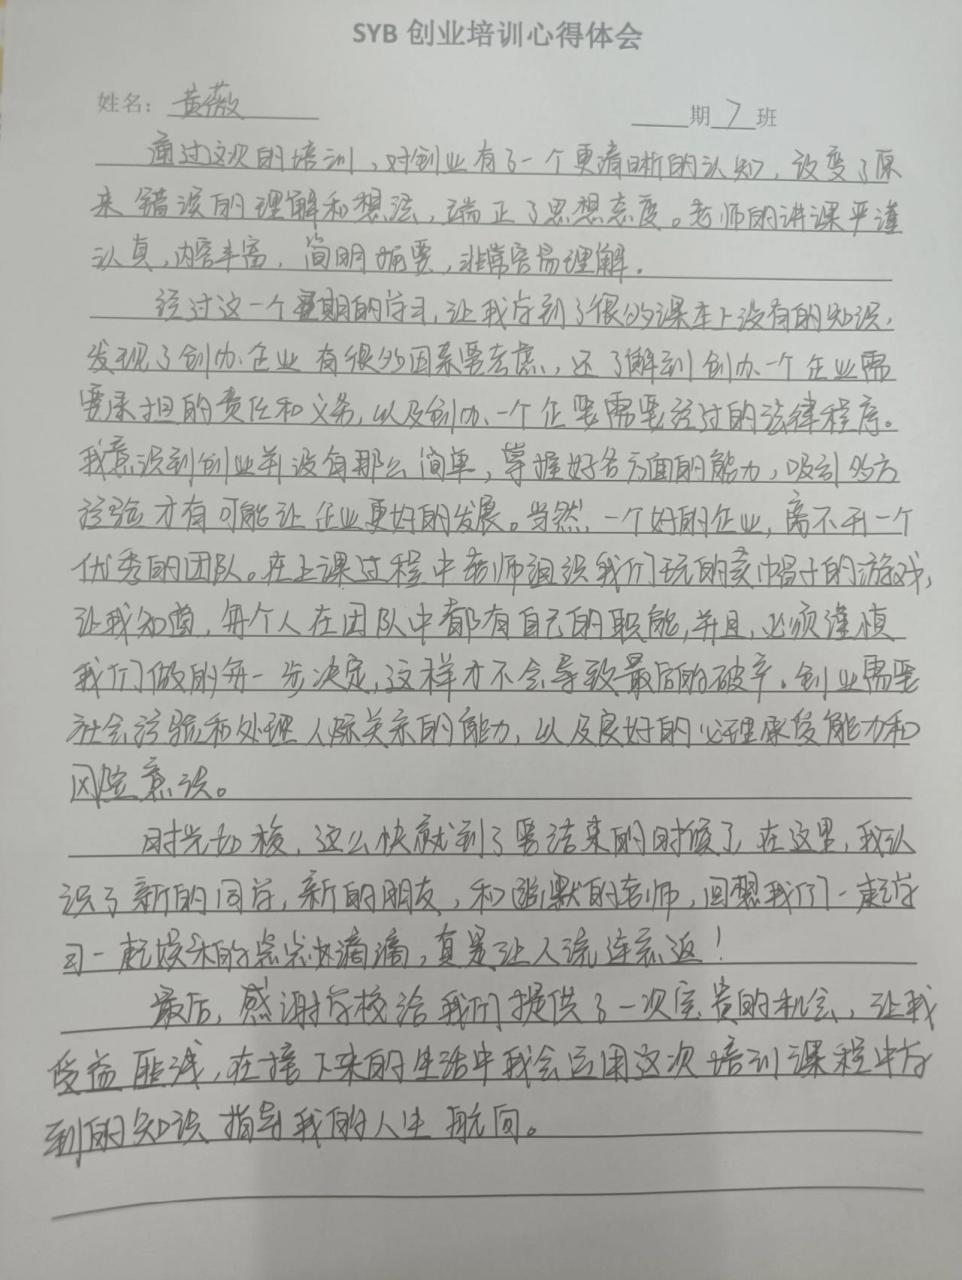 SYB 创业培训心得体会
姓名：黄薇 期7班
通过这次的培训，对创业有了一个更清晰的认知，改变了原
来错误的理解和想法，端正了思想态度。老师的讲课严谨
认真，内容丰富，简明扼要，非常容易理解。
经过这一个星期的学习，让我学到了很多课本上没有的知识，
发现了创办企业有很多因素要考虑，还了解到创办一个企业需
要承担的责任和义务，以及创办一个企业需要经过的法律程序。
我意识到创业并没有那么简单，掌握好各方面的能力，吸引多方
经验才有可能让企业更好的发展。当然，一个好的企业，离不开一个
优秀的团队。在上课过程中老师组织我们玩的卖帽子的游戏，
让我知道，每个人在团队中都有自己的职能，并且，必须谨慎
我们做的每一步决定，这样才不会导致最后的破产。创业需要
社会经验和处理人际关系的能力，以及良好的心理承受能力和
风险意识。
时光如梭，这么快就到了要结束的时候了，在这里，我认
识了新的同学，新的朋友，和幽默的老师，回想我们一起学
习一起娱乐的点点滴滴，真是让人流连忘返！
最后，感谢学校给我们提供了一次宝贵的机会，让我
受益匪浅，在接下来的生活中我会运用这次培训课程中学
到的知识指导我的人生航向。